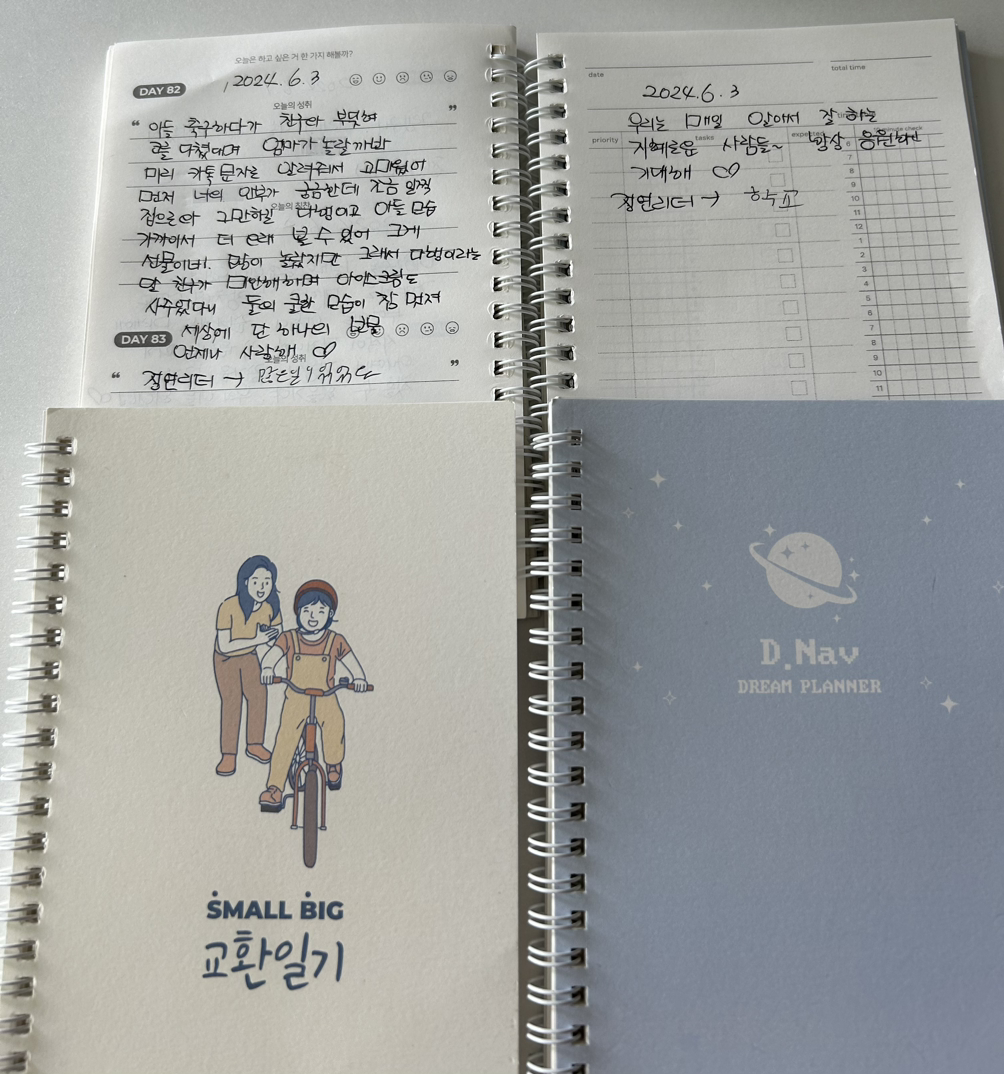 오늘은 하고 싶은 거 한 가지 해볼까?
DAY 82
2024. 6. 3
오늘의 성취
“ 아들 축구하다가 친구와 부딪혀 ”
코를 다쳤대며 엄마가 놀랄까봐
미리 카톡 문자로 알려줘서 고마웠어
먼저 너의 안부가 궁금한데 조금 일찍
오늘의 칭찬
집으로 와 그만하길 다행이고 아들 모습
가까이서 더 오래 볼 수 있어 그게
선물이네. 많이 놀랐지만 그래서 다행이라는
말 친구가 미안해하며 아이스크림도
사주었다니 둘의 쿨한 모습이 참 멋져
세상에 단 하나의 보물
DAY 83
언제나 사랑해 ♡
오늘의 성취
“ 정연리더 → ”
date
total time
2024. 6. 3
우리는 매일 알아서 잘 하는
priority
tasks
minute check
지혜로운 사람들~ 항상 응원하면
기대해 ♡
정연리더 →
6
7
8
9
10
11
12
1
2
3
4
5
6
7
8
9
10
11
SMALL BIG
교환일기
D.Nav
DREAM PLANNER